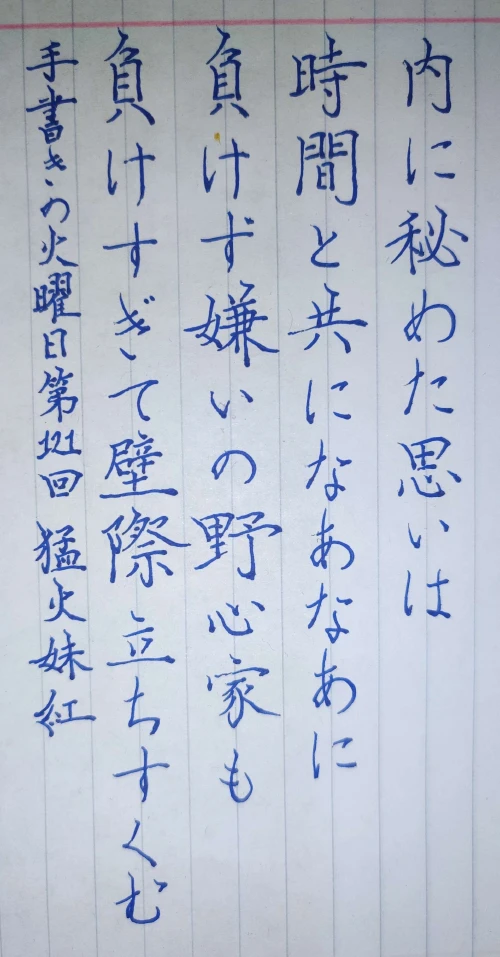 内に秘めた思いは
時間と共になあなあに
負けず嫌いの野心家も
負けすぎて壁際立ちすくむ
手書きの火曜日第121回 猛火妹紅